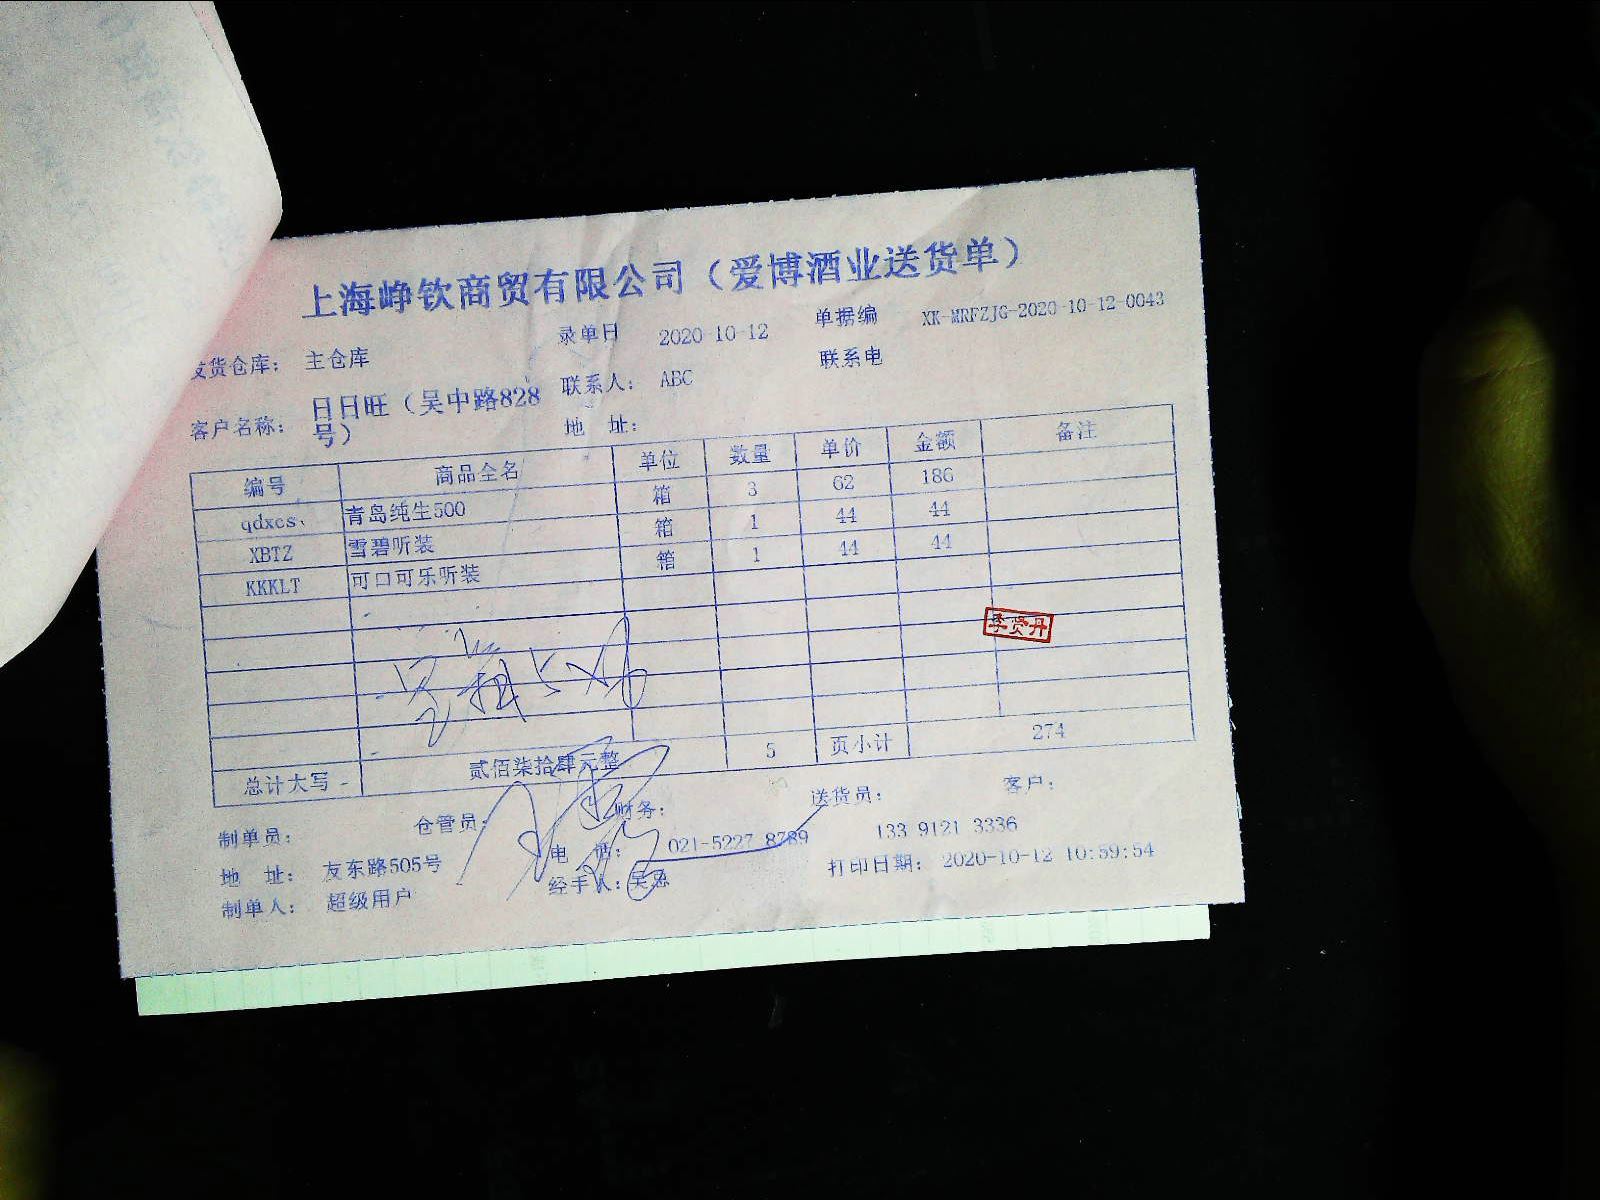 上海峥钦商贸有限公司（爱博酒业送货单）
录单日 2020-10-12 单据编 XK-MRFZJG-2020-10-12-0043
发货仓库： 主仓库 联系人： ABC 联系电
客户名称： 日日旺（吴中路828号） 地 址：
编号 商品全名 单位 数量 单价 金额 备注
qdxcs、 青岛纯生500 箱 3 62 186
XBTZ 雪碧听装 箱 1 44 44
KKKLT 可口可乐听装 箱 1 44 44
李贤丹
总计大写 贰佰柒拾肆元整 5 页小计 274
制单员： 仓管员： 财务： 送货员： 客户：
地 址： 友东路505号 电 话： 021-5227 8789 133 9121 3336
制单人： 超级用户 经手人：吴总 打印日期： 2020-10-12 10:59:54